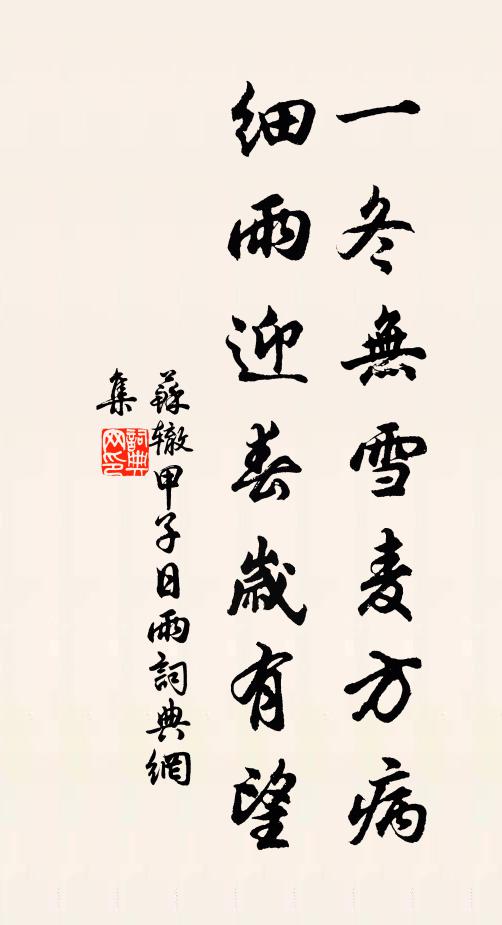 一冬無雪麦方病
細雨迎春歲有望
蘇辙甲子日雨詞典網
集
詞典
网印